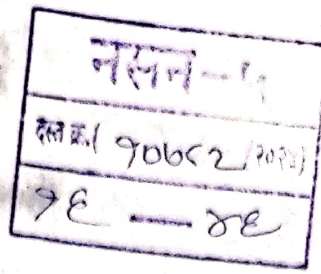 नसन-५
दस्त क्र.( १०७८२/२०२४)
१६ — ४६